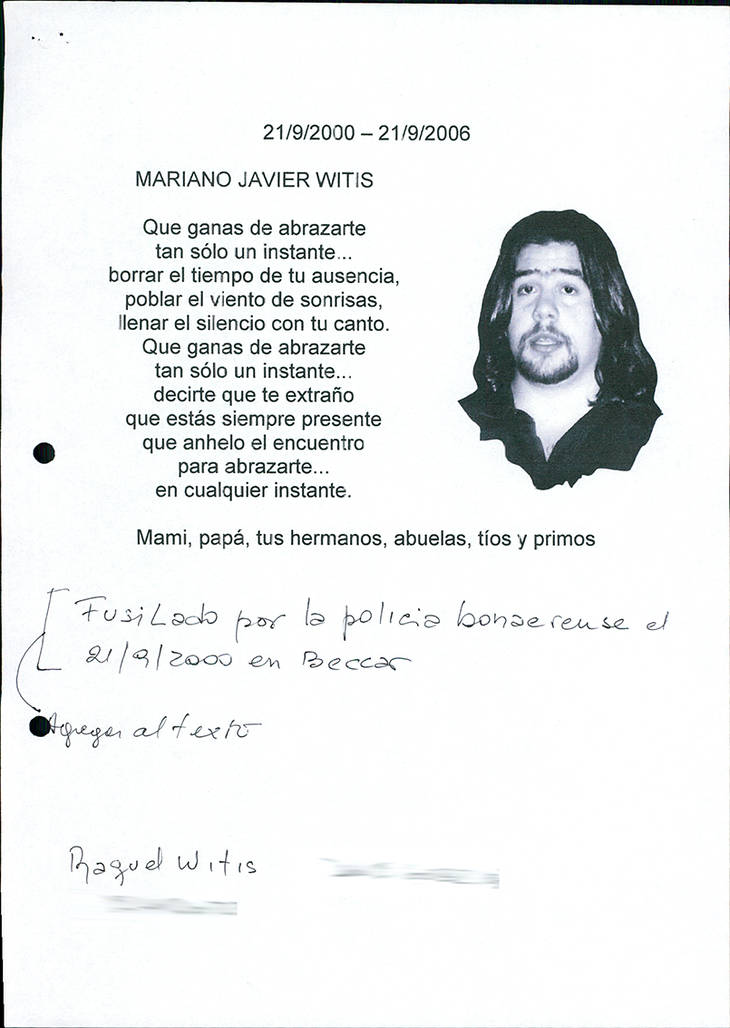 21/9/2000 – 21/9/2006
MARIANO JAVIER WITIS
Que ganas de abrazarte
tan sólo un instante...
borrar el tiempo de tu ausencia,
poblar el viento de sonrisas,
llenar el silencio con tu canto.
Que ganas de abrazarte
tan sólo un instante...
decirte que te extraño
que estás siempre presente
que anhelo el encuentro
para abrazarte...
en cualquier instante.
Mami, papá, tus hermanos, abuelas, tíos y primos
Fusilado por la policia bonaerense el
21/9/2000 en Beccar
Agregar al texto
Raquel Witis